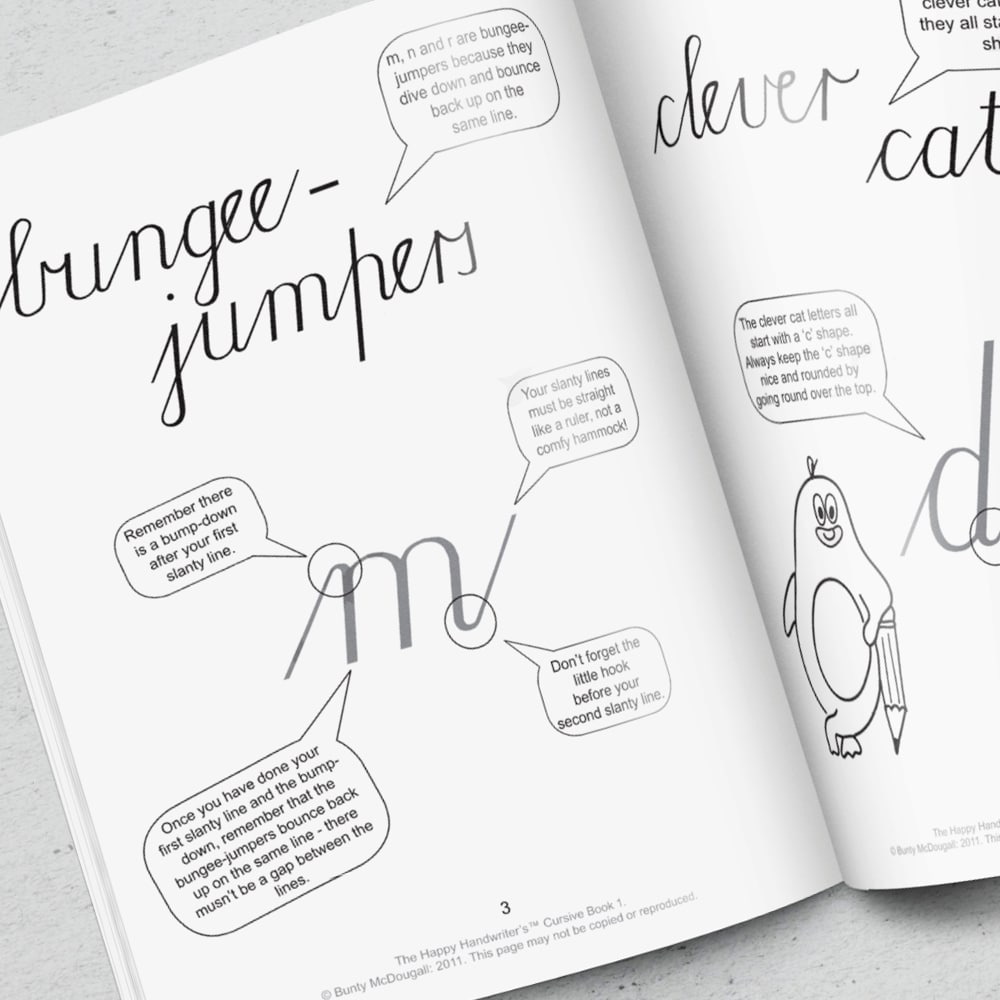 m, n and r are bungee-
jumpers because they
dive down and bounce
back up on the
same line.
bungee-
jumpers
Your slanty lines
must be straight
like a ruler, not a
comfy hammock!
Remember there
is a bump-down
after your first
slanty line.
m
Don't forget the
little hook
before your
second slanty line.
Once you have done your
first slanty line and the bump-
down, remember that the
bungee-jumpers bounce back
up on the same line - there
musn't be a gap between the
lines.
3
The Happy Handwriter's™ Cursive Book 1.
© Bunty McDougall: 2011. This page may not be copied or reproduced.
clever cat
they all sta
sh
clever
cat
The clever cat letters all
start with a 'c' shape.
Always keep the 'c' shape
nice and rounded by
going round over the top.
d
The Happy Hand
© Bunty McDougall: 2011. This